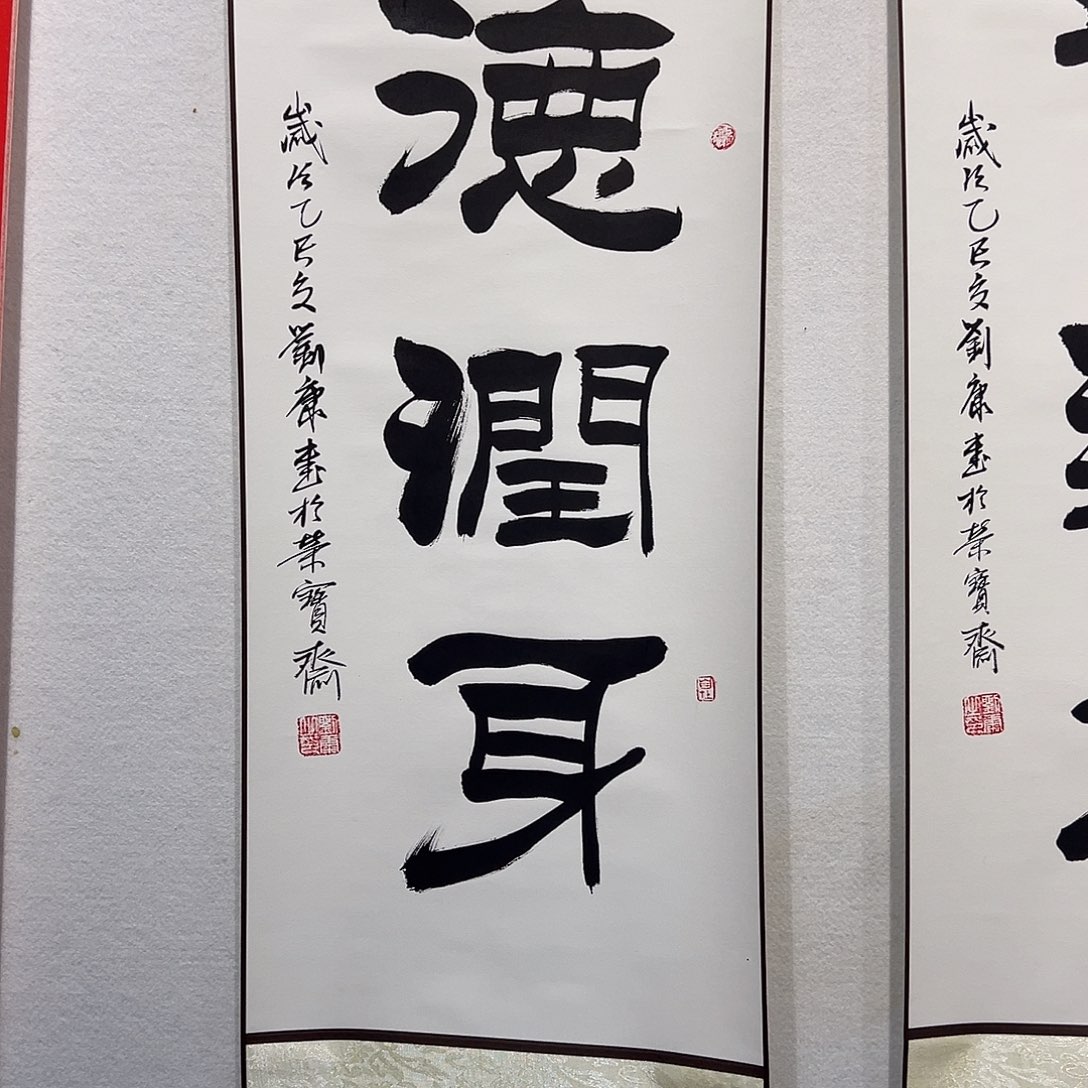 歲次乙巳夏劉康書於榮寶齋
德潤身
歲次乙巳夏劉康書於榮寶齋